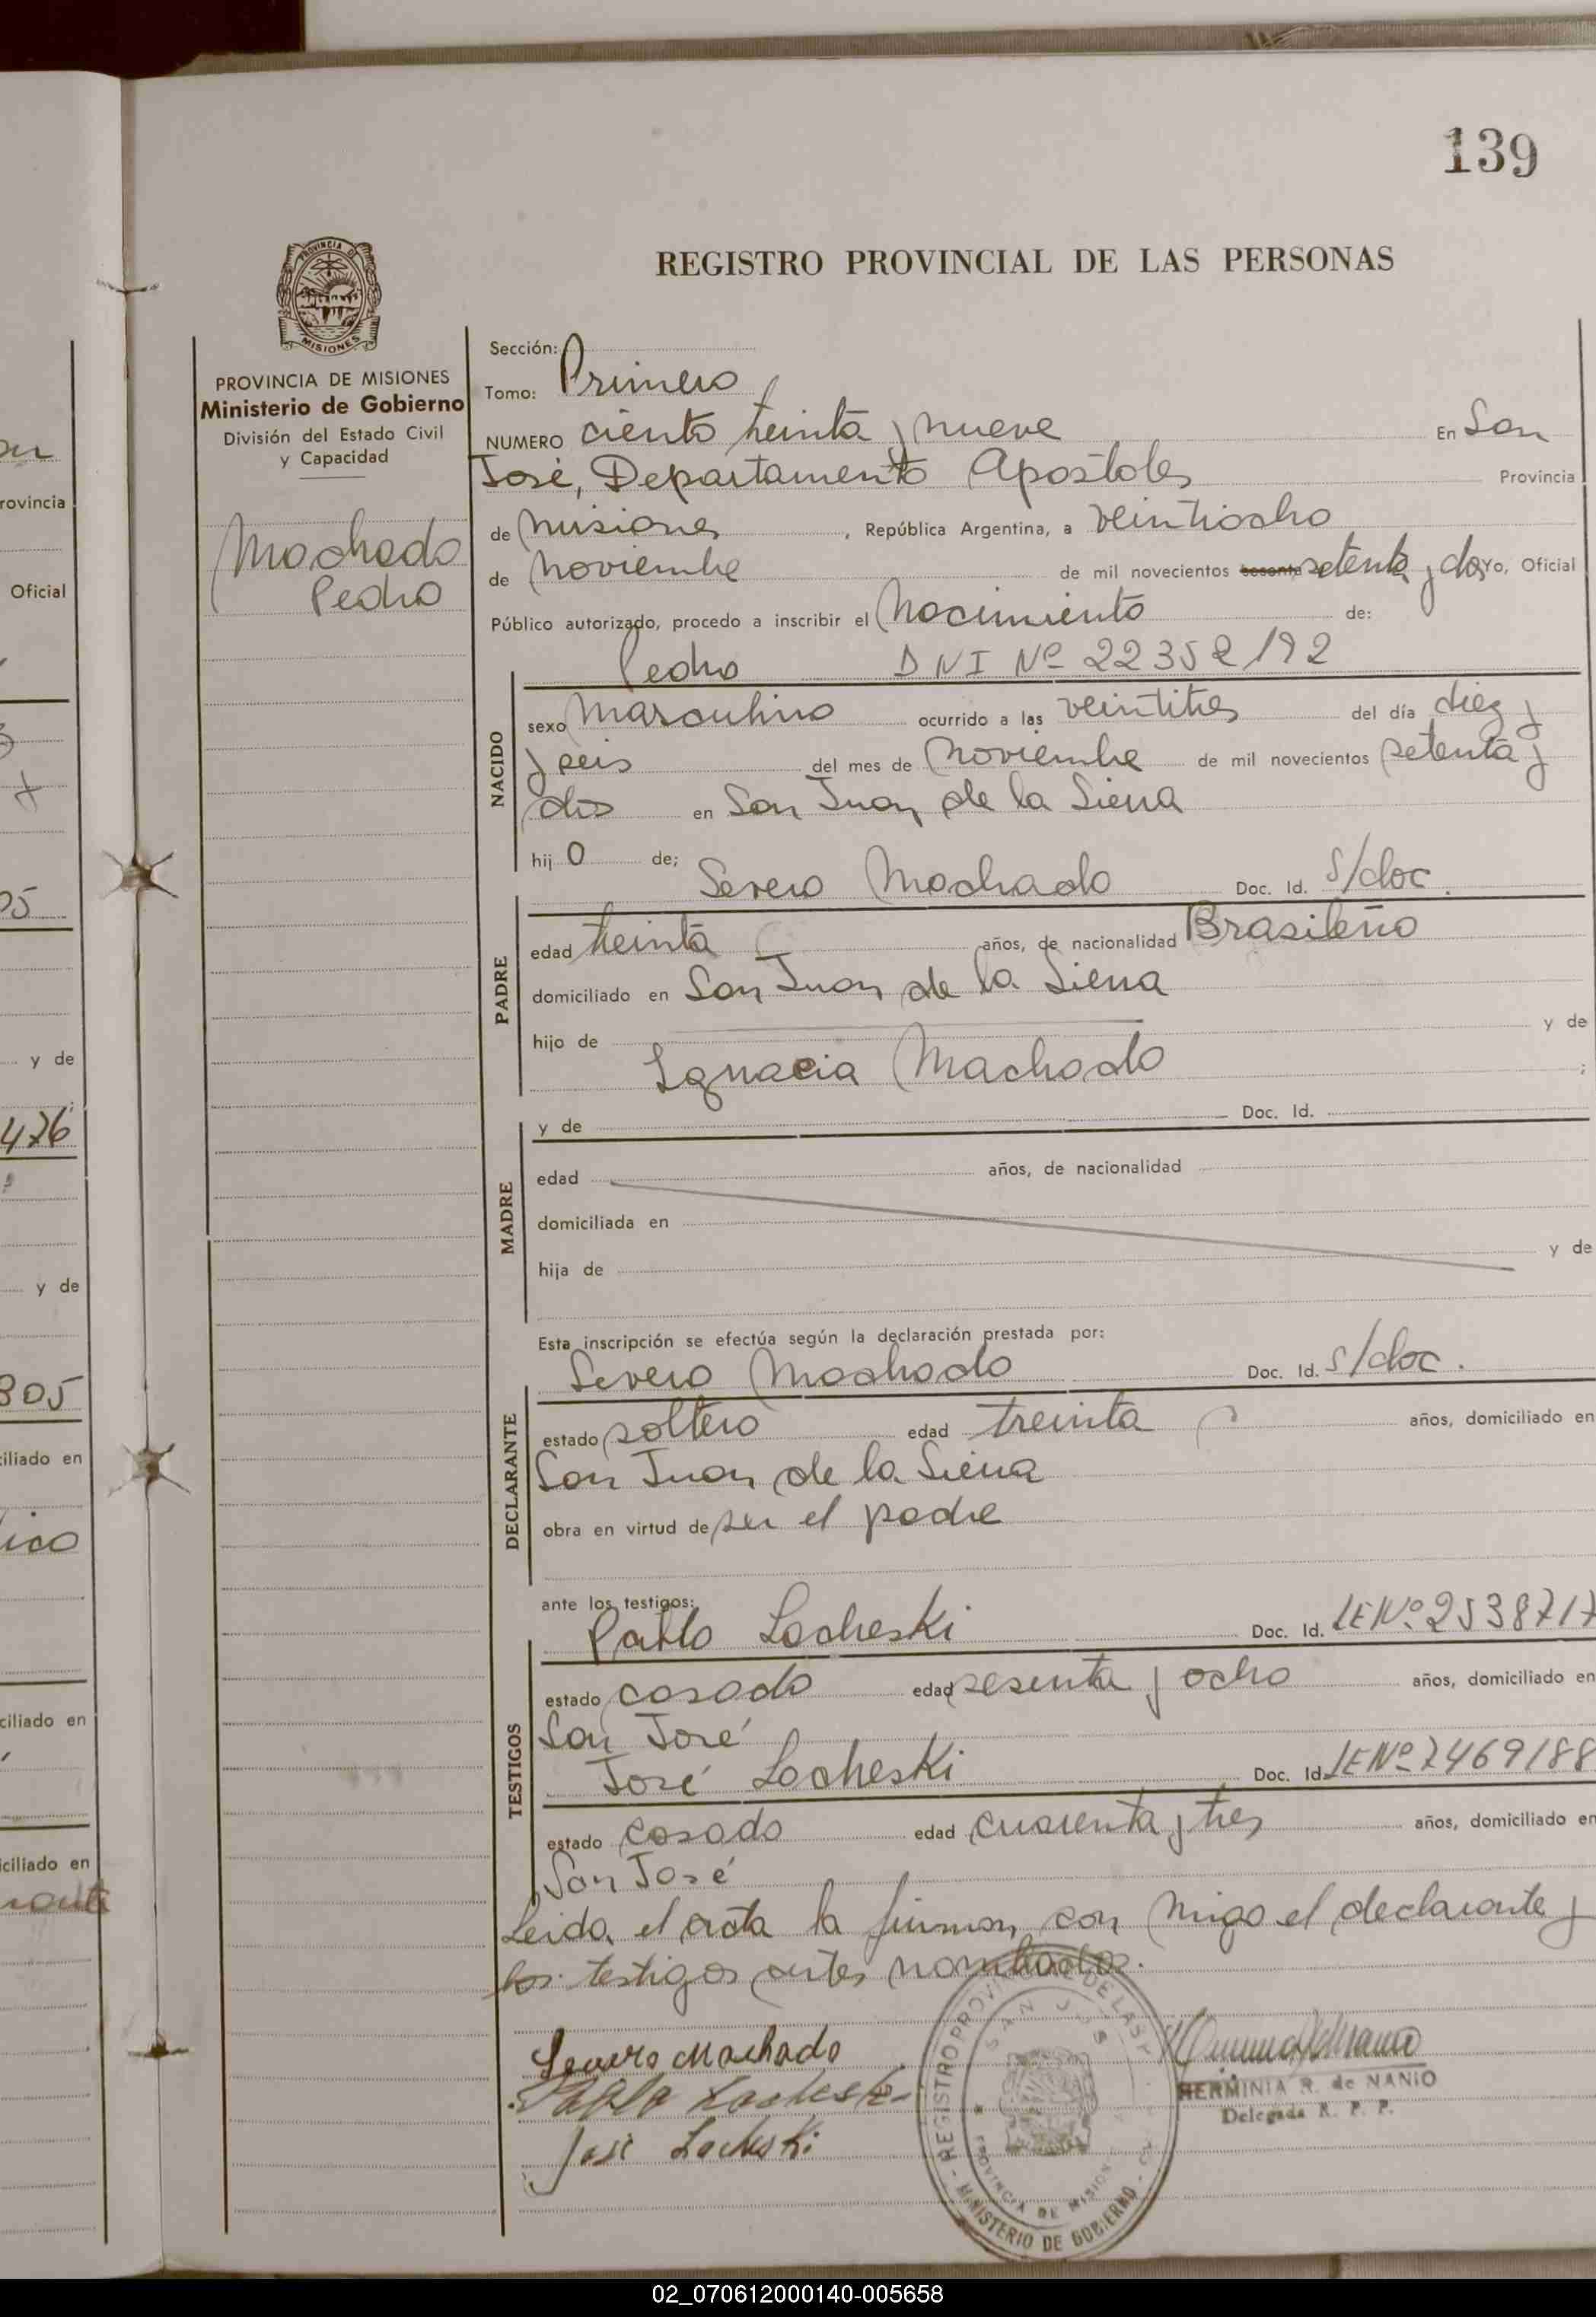 139
REGISTRO PROVINCIAL DE LAS PERSONAS
PROVINCIA DE MISIONES
Ministerio de Gobierno
División del Estado Civil
y Capacidad
Machado
Pedro
Sección:
Tomo: Primero
NUMERO ciento treinta y nueve En San
José, Departamento Apóstoles Provincia
de Misiones, República Argentina, a veintiocho
de Noviembre de mil novecientos sesenta setenta y dos Yo, Oficial
Público autorizado, procedo a inscribir el Nacimiento de:
Pedro DNI Nº 22352192
NACIDO
sexo Masculino ocurrido a las veintitres del día diez y
y seis del mes de Noviembre de mil novecientos setenta y
dos en San Juan de la Sierra
hij o de;
Severo Machado Doc. Id. S/doc.
PADRE
edad treinta años, de nacionalidad Brasileño
domiciliado en San Juan de la Sierra
hijo de y de
Ignacia Machado ;
y de Doc. Id.
MADRE
edad años, de nacionalidad
domiciliada en
hija de y de
Esta inscripción se efectúa según la declaración prestada por:
Severo Machado Doc. Id. S/doc.
DECLARANTE
estado soltero edad treinta años, domiciliado en
San Juan de la Sierra
obra en virtud de ser el padre
ante los testigos:
Pablo Locheski Doc. Id. LE Nº 2538717
TESTIGOS
estado casado edad sesenta y ocho años, domiciliado en
San José
José Locheski Doc. Id. LE Nº 7469188
estado casado edad cuarenta y tres años, domiciliado en
San José
Leida el acta la firman con migo el declarante y
los testigos antes nombrados.
Severo Machado
Pablo Locheski
José Locheski
HERMINIA R. de NANIO
Delegada R. P. P.
REGISTRO PROVINCIAL DE LAS P
SAN JOSE
PROVINCIA DE MISIONES
MINISTERIO DE GOBIERNO
02_070612000140-005658